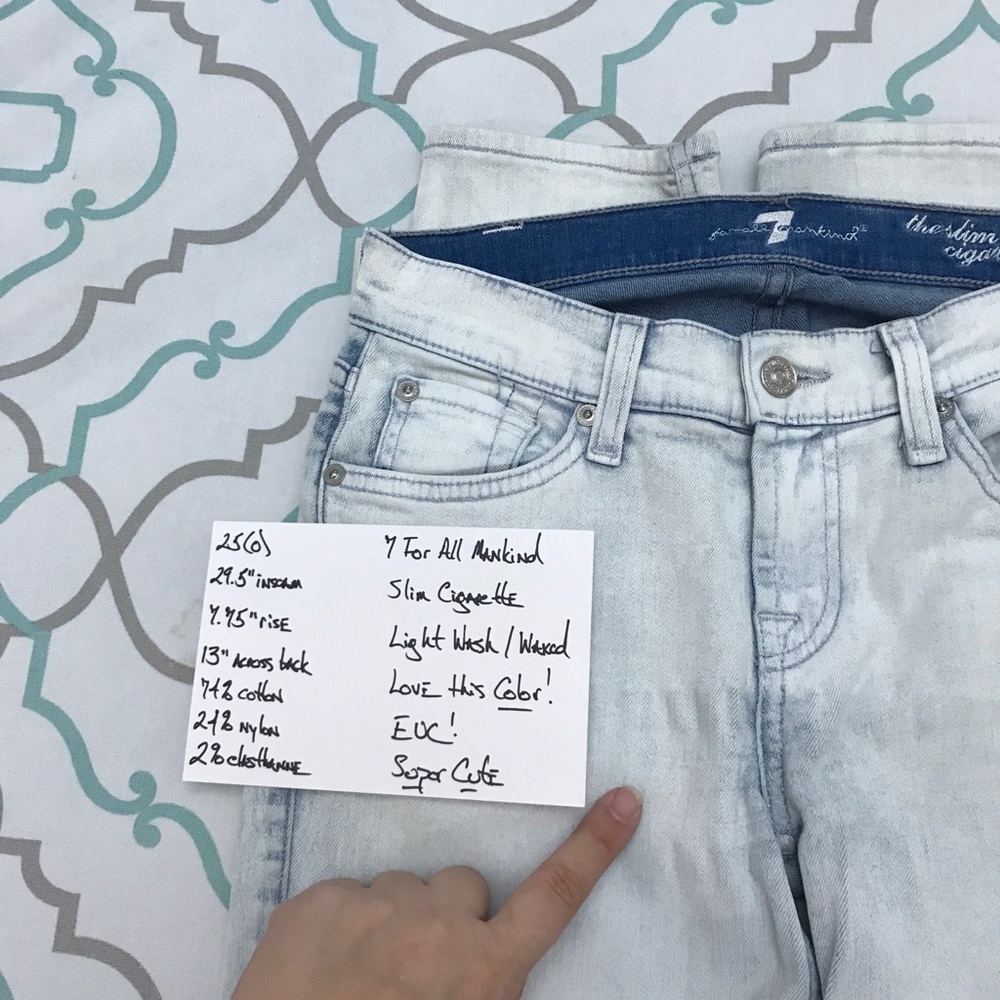 7
for all mankind®
the slim
cigar
25(0)
29.5" inseam
7.75" rise
13" Across back
74% cotton
24% Nylon
2% elasthanne
7 For All Mankind
Slim Cigarette
Light Wash / Waxed
Love this Color!
EUC!
Super Cute